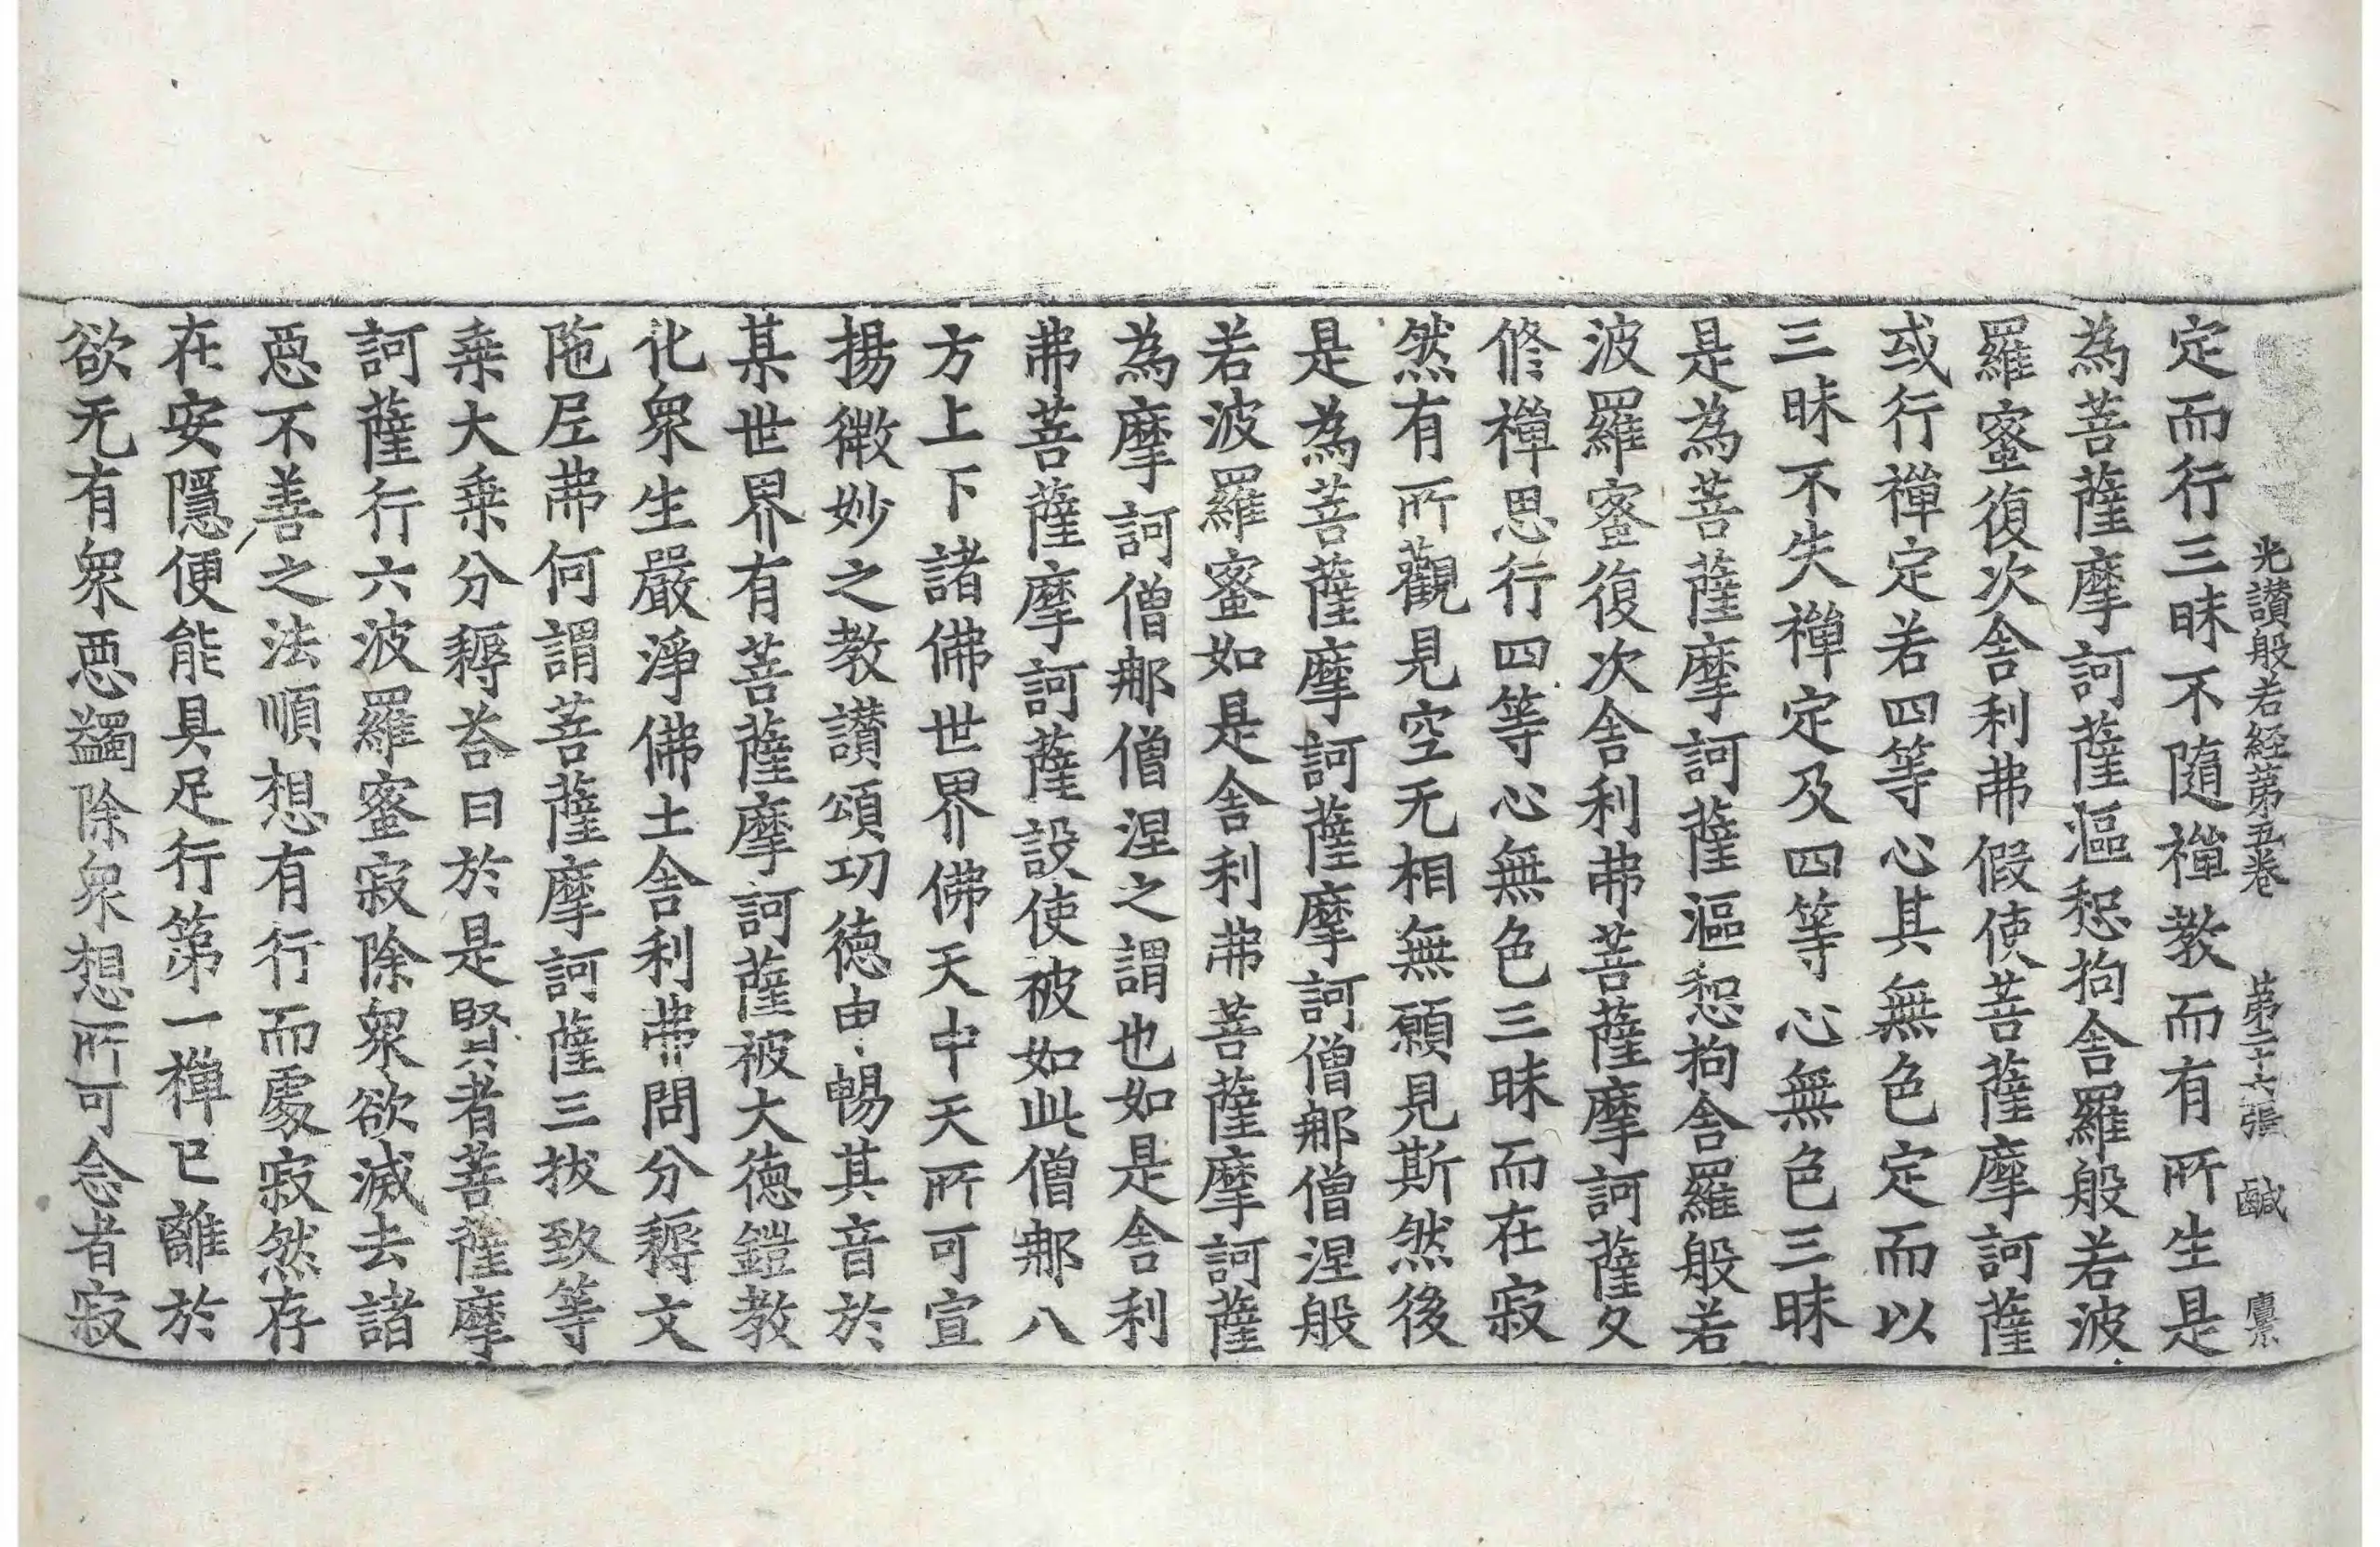 光讃般若経第五巻 第二十六張 鹹
定而行三昧不隨禪教而有所生是
為菩薩摩訶薩漚惒拘舎羅般若波
羅蜜復次舎利弗假使菩薩摩訶薩
或行禪定若四等心其無色定而以
三昧不失禪定及四等心無色三昧
是為菩薩摩訶薩漚惒拘舎羅般若
波羅蜜復次舎利弗菩薩摩訶薩夂
修禪思行四等心無色三昧而在寂
然有所觀見空无相無願見斯然後
是為菩薩摩訶薩摩訶僧那僧涅般
若波羅蜜如是舎利弗菩薩摩訶薩
為摩訶僧那僧涅之謂也如是舎利
弗菩薩摩訶薩設使被如此僧那八
方上下諸佛世界佛天中天所可宣
揚微妙之教讃頌功德申暢其音於
某世界有菩薩摩訶薩被大德鎧教
化衆生嚴淨佛土舎利弗問分耨文
陁尼弗何謂菩薩摩訶薩三拔致等
乗大乗分耨荅曰於是賢者菩薩摩
訶薩行六波羅蜜寂除衆欲滅去諸
惡不善之法順想有行而處寂然存
在安隱便能具足行第一禪已離於
欲无有衆惡蠲除衆想所可念者寂